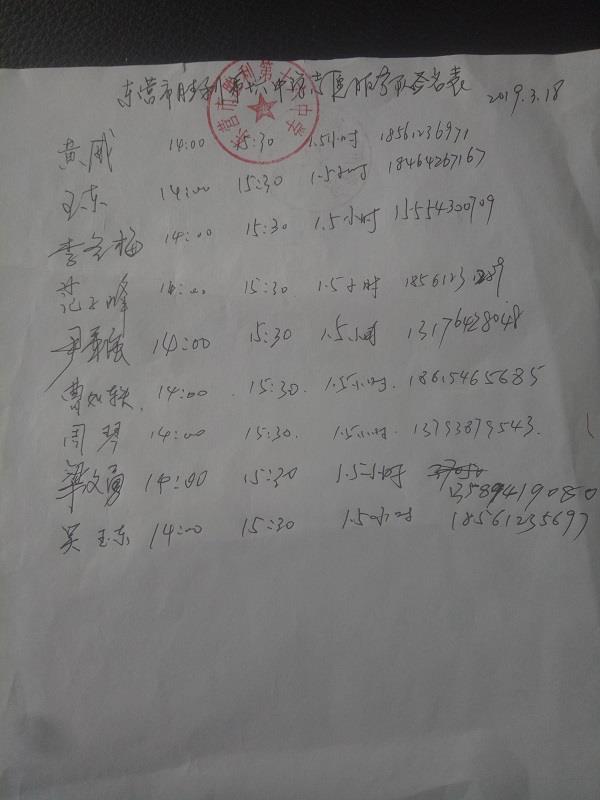 东营市胜利第六中学志愿服务队签名表 2019.3.18
黄威 14:00 15:30 1.5小时 18561236971
王东 14:00 15:30 1.5小时 18464267167
李金梅 14:00 15:30 1.5小时 15554300709
范 峰 14:00 15:30 1.5小时
14:00 15:30 1.5小时 13176428048
曹如轶 14:00 15:30 1.5小时 18615465685
周琴 14:00 15:30 1.5小时 13793879543
梁文勇 14:00 15:30 1.5小时
13589419080
吴玉东 14:00 15:30 1.5小时 18561235697